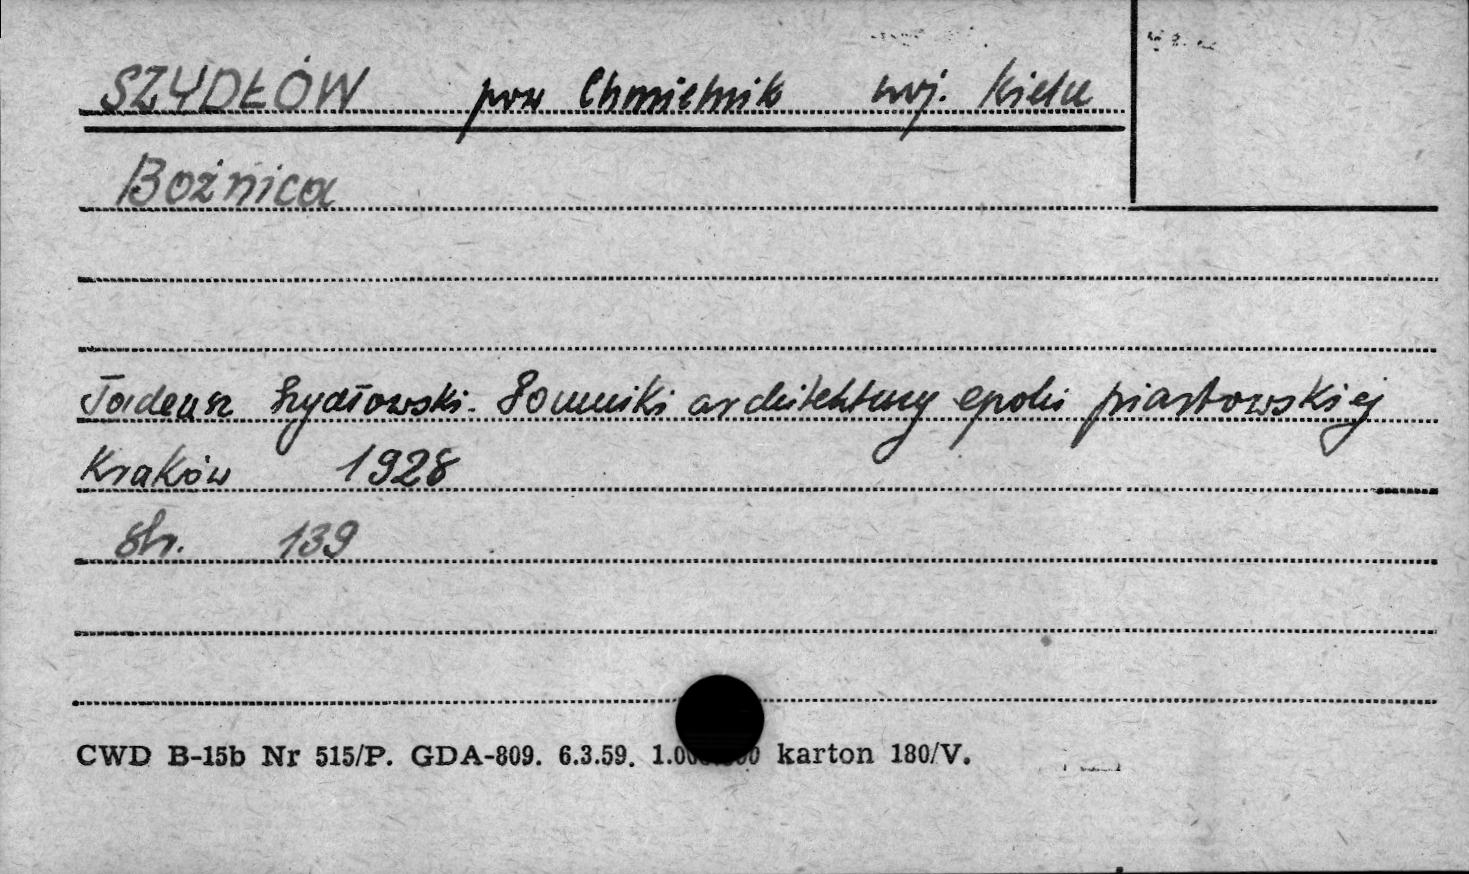 SZYDŁÓW pow Chmielnik woj. Kielce
Bożnica
Tadeusz Szydłowski. Pomniki architektury epoki piastowskiej
Kraków 1928
Str. 139
CWD B-15b Nr 515/P. GDA-809. 6.3.59. karton 180/V.